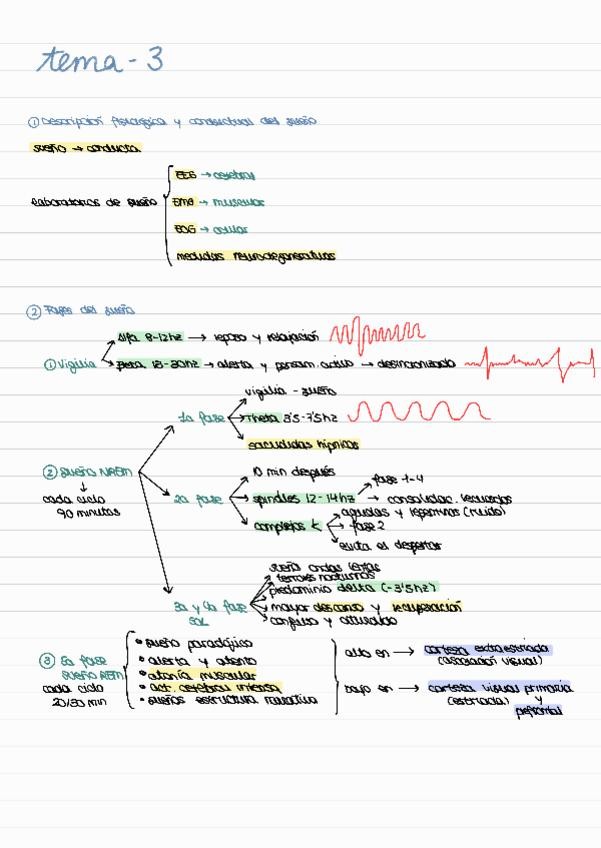 tema - 3
① Descripción fisiológica y conductual del sueño
sueño → conducta
Laboratorios de sueño
EEG → cerebral
EMG → muscular
EOG → ocular
medidas neurodegenerativas
② Fases del sueño
① Vigilia
Alfa 8-12hz → reposo y relajación
Beta 13-30hz → alerta y pensam. activo → desincronizado
② Sueño NREM
↓
cada ciclo
90 minutos
1a fase
vigilia - sueño
Theta 3'5-7'5hz
sacudidas hípnicas
2a fase
10 min después
spindles 12-14hz
fase 1-4
→ consolidac. recuerdos
complejos K
agudas y repentinas (ruido)
fase 2
evita el despertar
3a y 4a fase
SOL
sueño ondas lentas
terrores nocturnos
predominio delta (-3'5hz)
mayor descanso y recuperación
confuso y aturdido
③ 5a fase
sueño REM
cada ciclo
20/30 min
• sueño paradójico
• alerta y atento
• atonía muscular
• act. cerebral intensa
• sueños estructura narrativa
alto en → corteza extraestriada
(asociación visual)
bajo en → corteza visual primaria
(estriada) y
prefrontal